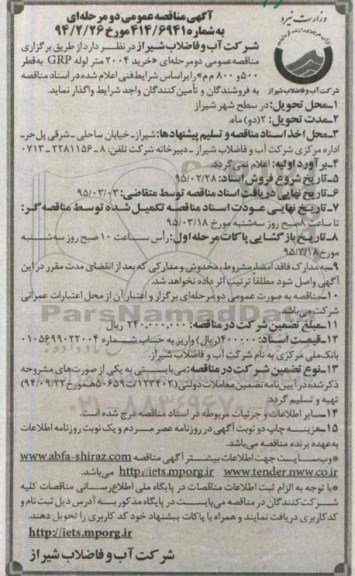 وزارت نیرو
شرکت آب و فاضلاب شیراز
آگهی مناقصه عمومی دو مرحله‌ای
به شماره ۴۱۴/۶۹۴۱ مورخ ۹۴/۲/۲۶
شرکت آب و فاضلاب شیراز در نظر دارد از طریق برگزاری
مناقصه عمومی دومرحله‌ای «خرید ۲۰۰۴ متر لوله GRP به قطر
۵۰۰ و ۸۰۰ م م» را براساس شرایط فنی اعلام شده در اسناد مناقصه
به فروشندگان و تأمین کنندگان واجد شرایط واگذار نماید.
۱-محل تحویل: در سطح شهر شیراز
۲-مدت تحویل: ۲(دو) ماه.
۳-محل اخذ اسناد مناقصه و تسلیم پیشنهادها: شیراز- خیابان ساحلی - شرقی پل حر-
اداره مرکزی شرکت آب و فاضلاب شیراز - دبیرخانه شرکت تلفن: ۸-۲۲۸۱۱۵۶-۰۷۱۳
۴-برآورد اولیه: اعلام نمی‌گردد.
۵-تاریخ شروع فروش اسناد: ۹۵/۰۲/۲۸
۶-تاریخ نهایی دریافت اسناد مناقصه توسط متقاضی: ۹۵/۰۳/۰۳
۷-تاریخ نهایی عودت اسناد مناقصه تکمیل شده توسط مناقصه گر:
تا ساعت ۸ صبح روز سه شنبه مورخ ۹۵/۰۳/۱۸
۸-تاریخ بازگشایی پاکات مرحله اول: رأس ساعت ۱۰ صبح روز سه‌شنبه
مورخ ۹۵/۳/۱۸
۹-به مدارک فاقد امضا، مشروط، مخدوش و مدارکی که بعد از انقضای مدت مقرر در این
آگهی واصل شود مطلقاً ترتیب اثر داده نخواهد شد.
۱۰-مناقصه به صورت عمومی دو مرحله‌ای برگزار و اعتبار آن از محل اعتبارات عمرانی
شرکت می‌باشد.
۱۱-مبلغ تضمین شرکت در مناقصه: ۲۴۰,۰۰۰,۰۰۰ ریال
۱۲-قیمت اسناد: ۴۰۰۰۰۰(ریال) واریز به حساب شماره ۰۱۰۵۶۹۹۰۲۲۰۰۴
بانک ملی مرکزی به نام شرکت آب و فاضلاب شیراز.
۱۳-نوع تضمین شرکت در مناقصه: می‌بایستی به یکی از صورت‌های مشروحه
ذکر شده در آیین‌نامه تضمین معاملات دولتی (۱۲۳۴۰۲/ت۵۰۶۵۹هـ مورخ ۹۴/۰۹/۲۲)
تهیه و تسلیم گردد.
۱۴-سایر اطلاعات و جزئیات مربوطه در اسناد مناقصه درج شده است.
۱۵-هزینه چاپ دو نوبت آگهی در روزنامه عصر مردم و یک نوبت روزنامه اطلاعات
به عهده برنده مناقصه می‌باشد.
*وب سایت جهت اطلاعات بیشتر آگهی مناقصه www.abfa-shiraz.com
www.tender.nww.co.ir و http://iets.mporg.ir می‌باشد.
*با توجه به الزام ثبت اطلاعات مناقصات در پایگاه ملی اطلاع‌رسانی مناقصات کلیه
شرکت کنندگان در مناقصه می‌بایست در پایگاه مذکور به آدرس ذیل ثبت نام و
کد کاربری دریافت نمایند و همراه با پاکات پیشنهاد خود کد کاربری را تحویل دهند.
http://iets.mporg.ir
شرکت آب و فاضلاب شیراز
ParsNamadData